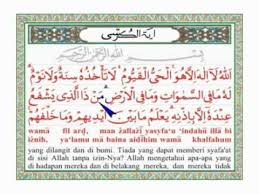 اية الكرسي
بسم الله الرحمن الرحيم
اَللهُ لَآ اِلٰهَ اِلَّا هُوَ الْحَيُّ الْقَيُّوْمُ لَا تَأْخُذُهُ سِنَةٌ وَلَا نَوْمٌ
لَهُ مَا فِي السَّمٰوَاتِ وَمَا فِي الْاَرْضِ مَنْ ذَا الَّذِيْ يَشْفَعُ
عِنْدَهُ اِلَّا بِاِذْنِهِ يَعْلَمُ مَا بَيْنَ اَيْدِيْهِمْ وَمَا خَلْفَهُمْ
wamā fil arḍ, man żallażī yasyfa'u 'indahū illā bi
iżnih, ya'lamu mā baina aidīhim wamā khalfahum
yang dilangit dan di bumi. Tiada yang dapat memberi syafa'at
di sisi Allah tanpa izin-Nya? Allah mengetahui apa-apa yang
di hadapan mereka dan di belakang mereka, dan mereka tidak